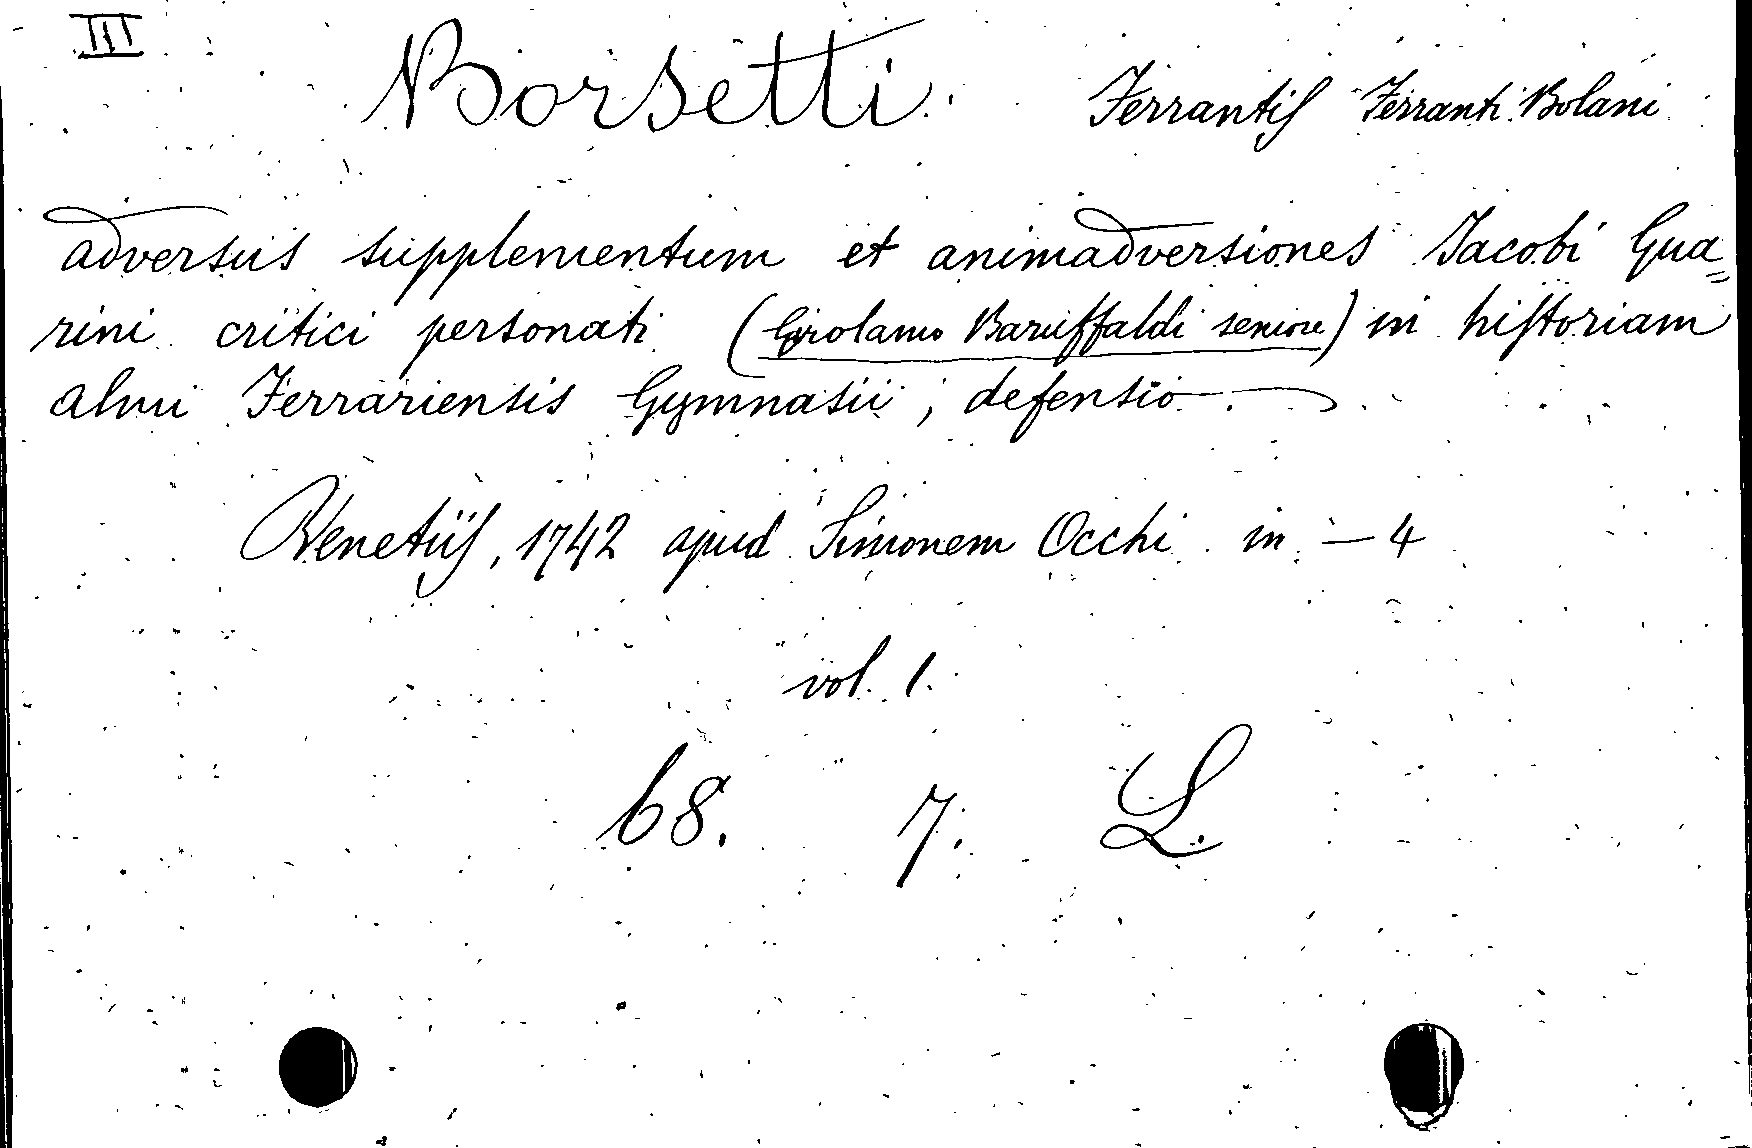 III
Borsetti Ferrantis Ferranti Bolani
adversus supplementum et animadversiones Jacobi Gua=
rini critici personati (Girolamo Baruffaldi seniore) in historiam
almi Ferrariensis Gymnasii, defensio.
Venetiis, 1742 apud Simonem Occhi in - 4
vol. 1.
68. 7. L.